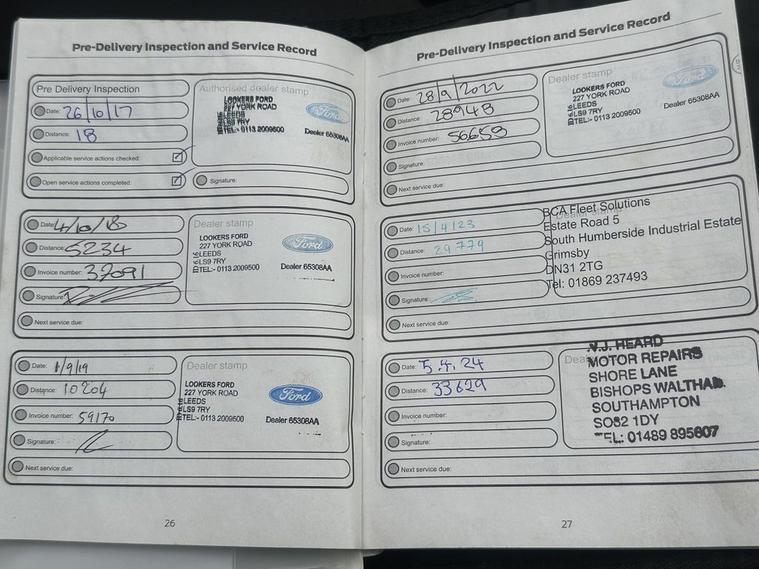 Pre-Delivery Inspection and Service Record
Pre Delivery Inspection
Date: 26/10/17
Distance: 18
Applicable service actions checked:
Open service actions completed:
Authorised dealer stamp
LOOKERS FORD
227 YORK ROAD
LEEDS
LS9 7RY
TEL:- 0113 2009500
Ford
Dealer 65308AA
Signature:
Date: 4/10/18
Distance: 5234
Invoice number: 37091
Signature:
Next service due:
Dealer stamp
LOOKERS FORD
227 YORK ROAD
LEEDS
LS9 7RY
TEL:- 0113 2009500
Ford
Dealer 65308AA
Date: 1/9/19
Distance: 10204
Invoice number: 59170
Signature:
Next service due:
Dealer stamp
LOOKERS FORD
227 YORK ROAD
LEEDS
LS9 7RY
TEL:- 0113 2009500
Ford
Dealer 65308AA
26
Pre-Delivery Inspection and Service Record
Date: 28/9/2022
Distance: 28948
Invoice number: 56659
Signature:
Next service due:
Dealer stamp
LOOKERS FORD
227 YORK ROAD
LEEDS
LS9 7RY
TEL:- 0113 2009500
Ford
Dealer 65308AA
Date: 15/4/23
Distance: 29779
Invoice number:
Signature:
Next service due:
BCA Fleet Solutions
Estate Road 5
South Humberside Industrial Estate
Grimsby
DN31 2TG
Tel: 01869 237493
Date: 5.4.24
Distance: 33629
Invoice number:
Signature:
Next service due:
V.J. HEARD
MOTOR REPAIRS
SHORE LANE
BISHOPS WALTHAM
SOUTHAMPTON
SO32 1DY
TEL: 01489 895607
27